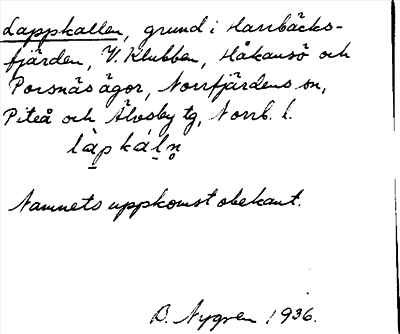 Lappkallen, grund i Harrbäcks-
fjärden, V. Klubben, Håkansö och
Porsnäs ägor, Norrfjärdens sn,
Piteå och Älvsby tg, Norrb. l.
làpkáḷn̥
Namnets uppkomst obekant.
B. Nygren 1936.